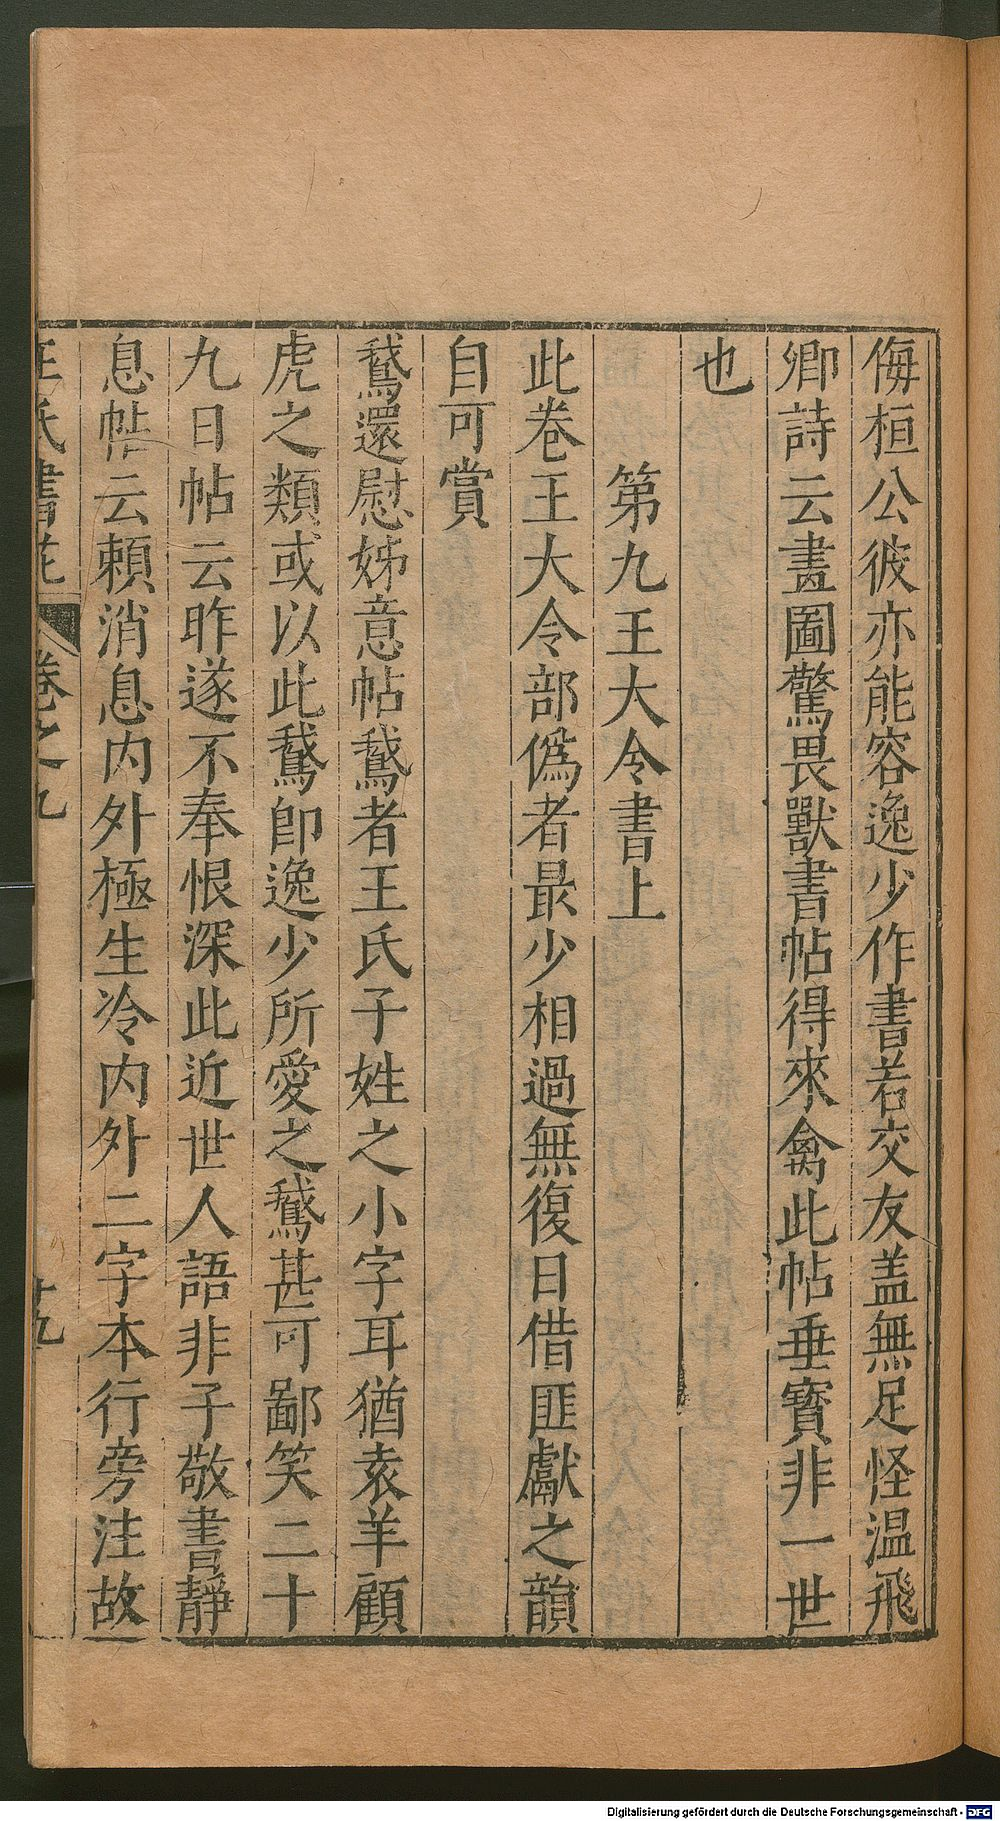 侮桓公彼亦能容逸少作書若交友盖無足怪温飛
卿詩云畫圖驚畏獸書帖得來禽此帖垂寳非一世
也
第九王大令書上
此卷王大令部僞者最少相過無復日借匪獻之韻
自可賞
鵞還慰姊意帖鵞者王氏子姓之小字耳猶袁羊顧
虎之類或以此鵞卽逸少所愛之鵞甚可鄙笑二十
九日帖云昨遂不奉恨深此近世人語非子敬書靜
息帖云頼消息内外極生冷内外二字本行旁注故
王氏書苑 卷之九 十九
Digitalisierung gefördert durch die Deutsche Forschungsgemeinschaft - DFG